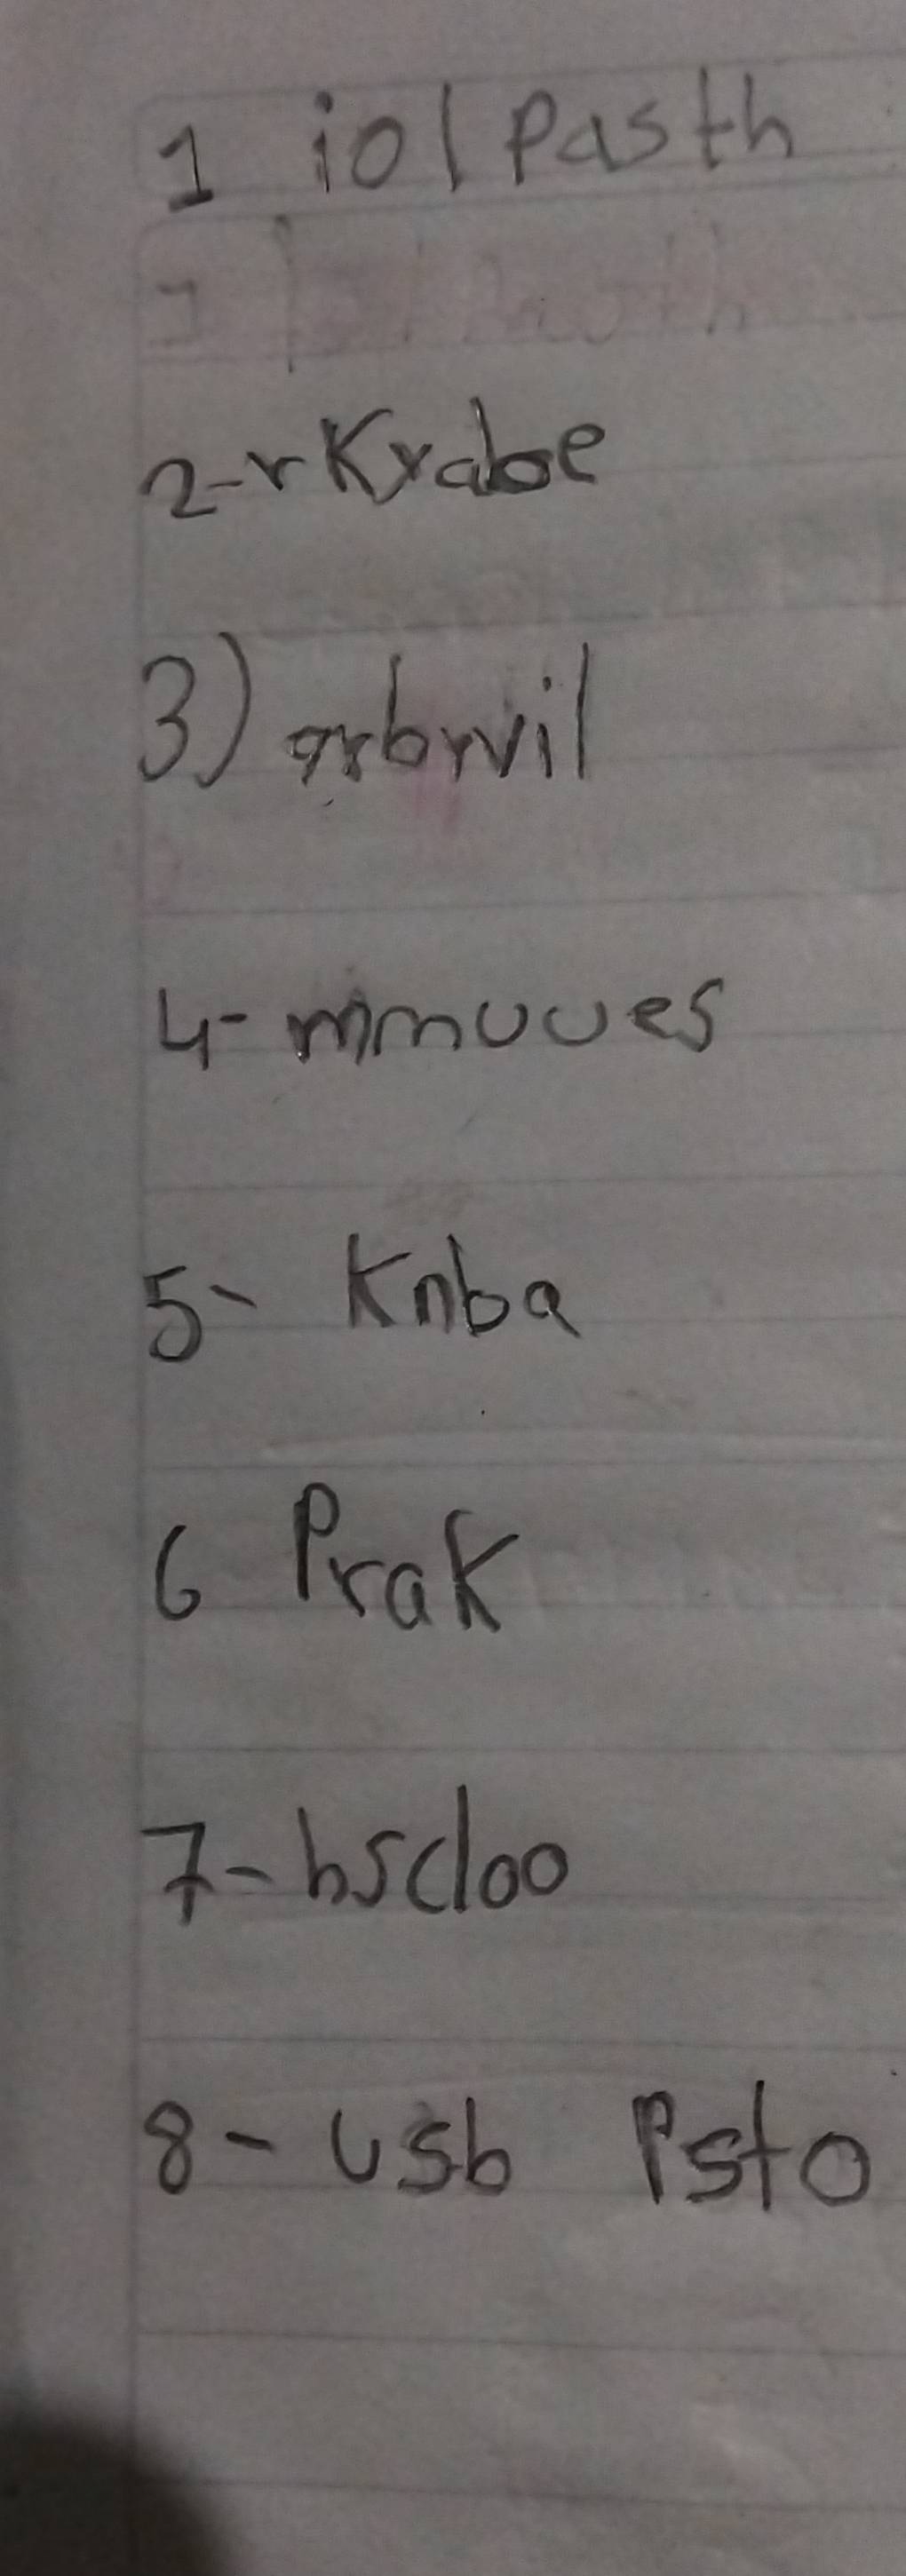 1 iol Pasth
2-rKrabe
3) arbrvil
4- mmuues
5- Knba
6 Prak
7- hscloo
8- usb Psto